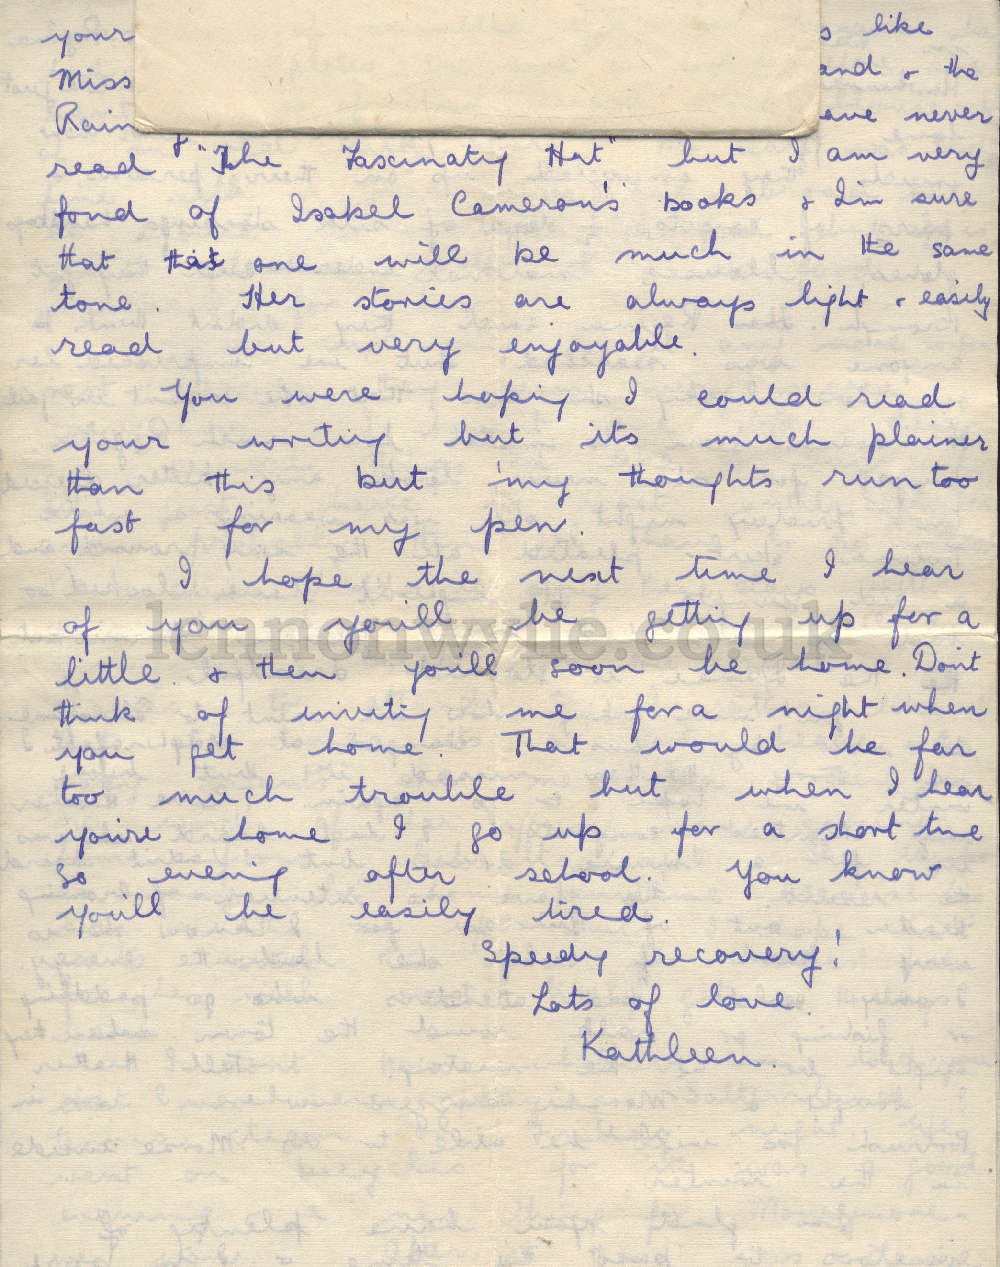 your s like
Miss and & the
Rain ave never
read "The Fascinatig Hat" but I am very
fond of Isabel Cameron's books & I'm sure
that this one will be much in the same
tone. Her stories are always light & easily
read but very enjoyable.
You were hoping I could read
your writing but its much plainer
than this but my thoughts run too
fast for my pen.
I hope the next time I hear
of you you'll be getting up for a
little & then you'll soon be home. Don't
think of invitig me for a night when
you get home. That would be far
too much trouble but when I hear
you're home I go up for a short time
so evenig after school. You know
you'll be easily tired.
Speedy recovery!
Lots of love.
Kathleen.
lennonwylie.co.uk